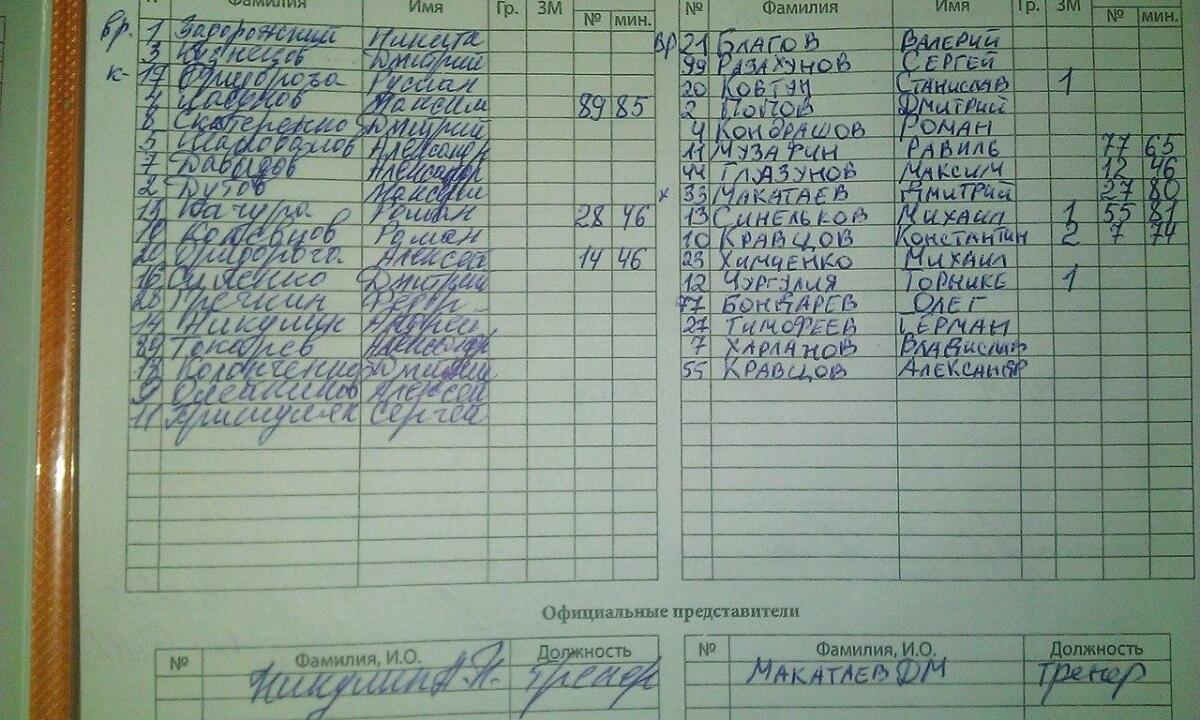 № Фамилия Имя Гр. ЗМ № мин.
вр. 1 Задорожний Никита
3 Кузнецов Дмитрий
к- 17 Придороза Руслан
4 Максим 89 85
8 Скатеренко Дмитрий
5 Шаповалов Александр
7 Давыдов Александр
2 Бутов Максим
13 Качура Роман 28 46
19 Роман
20 Алексей 14 46
16 Дмитрий
28 Гречкин Федор
14 Никулин Андрей
89 Токарев Александр
18 Дмитрий
9 Олейников Алексей
11 Сергей
№ Фамилия Имя Гр. ЗМ № мин.
вр 21 БЛАГОВ ВАЛЕРИЙ
99 РАЗАХУНОВ СЕРГЕЙ
20 КОВТУН СТАНИСЛАВ 1
2 ПОПОВ ДМИТРИЙ
4 КОНДРАШОВ РОМАН
11 МУЗАФИН РАВИЛЬ 77 65
44 ГЛАЗУНОВ МАКСИМ 12 46
х 33 МАКАТАЕВ ДМИТРИЙ 27 80
13 СИНЕЛЬКОВ МИХАИЛ 1 55 81
10 КРАВЦОВ КОНСТАНТИН 2 7 74
23 ХИМЧЕНКО МИХАИЛ
12 ЧУРГУЛИЯ ТОРНИКЕ 1
77 БОНДАРЕВ ОЛЕГ
27 ТИМОФЕЕВ ГЕРМАН
7 ХАРЛАНОВ ВЛАДИСЛАВ
55 КРАВЦОВ АЛЕКСАНДР
Официальные представители
№ Фамилия, И.О. Должность
Никулин А.Н. Тренер
№ Фамилия, И.О. Должность
МАКАТАЕВ ДМ Тренер